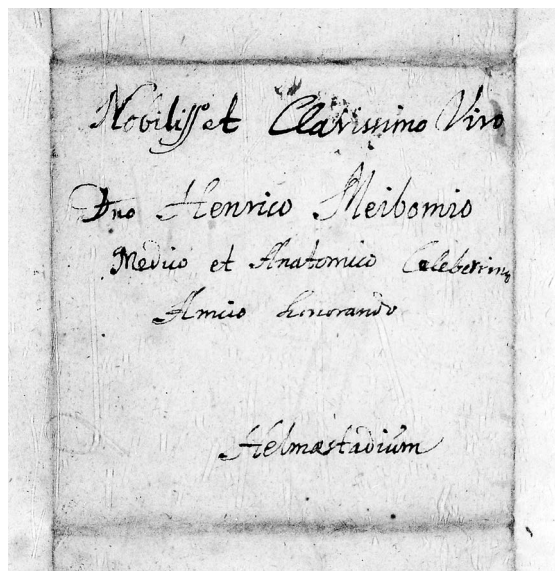 Nobiliss⁰ et Clarissimo Viro
Dno Henrico Meibomio
Medico et Anatomico Celeberrimo
Amico honorando
Helmæstadium